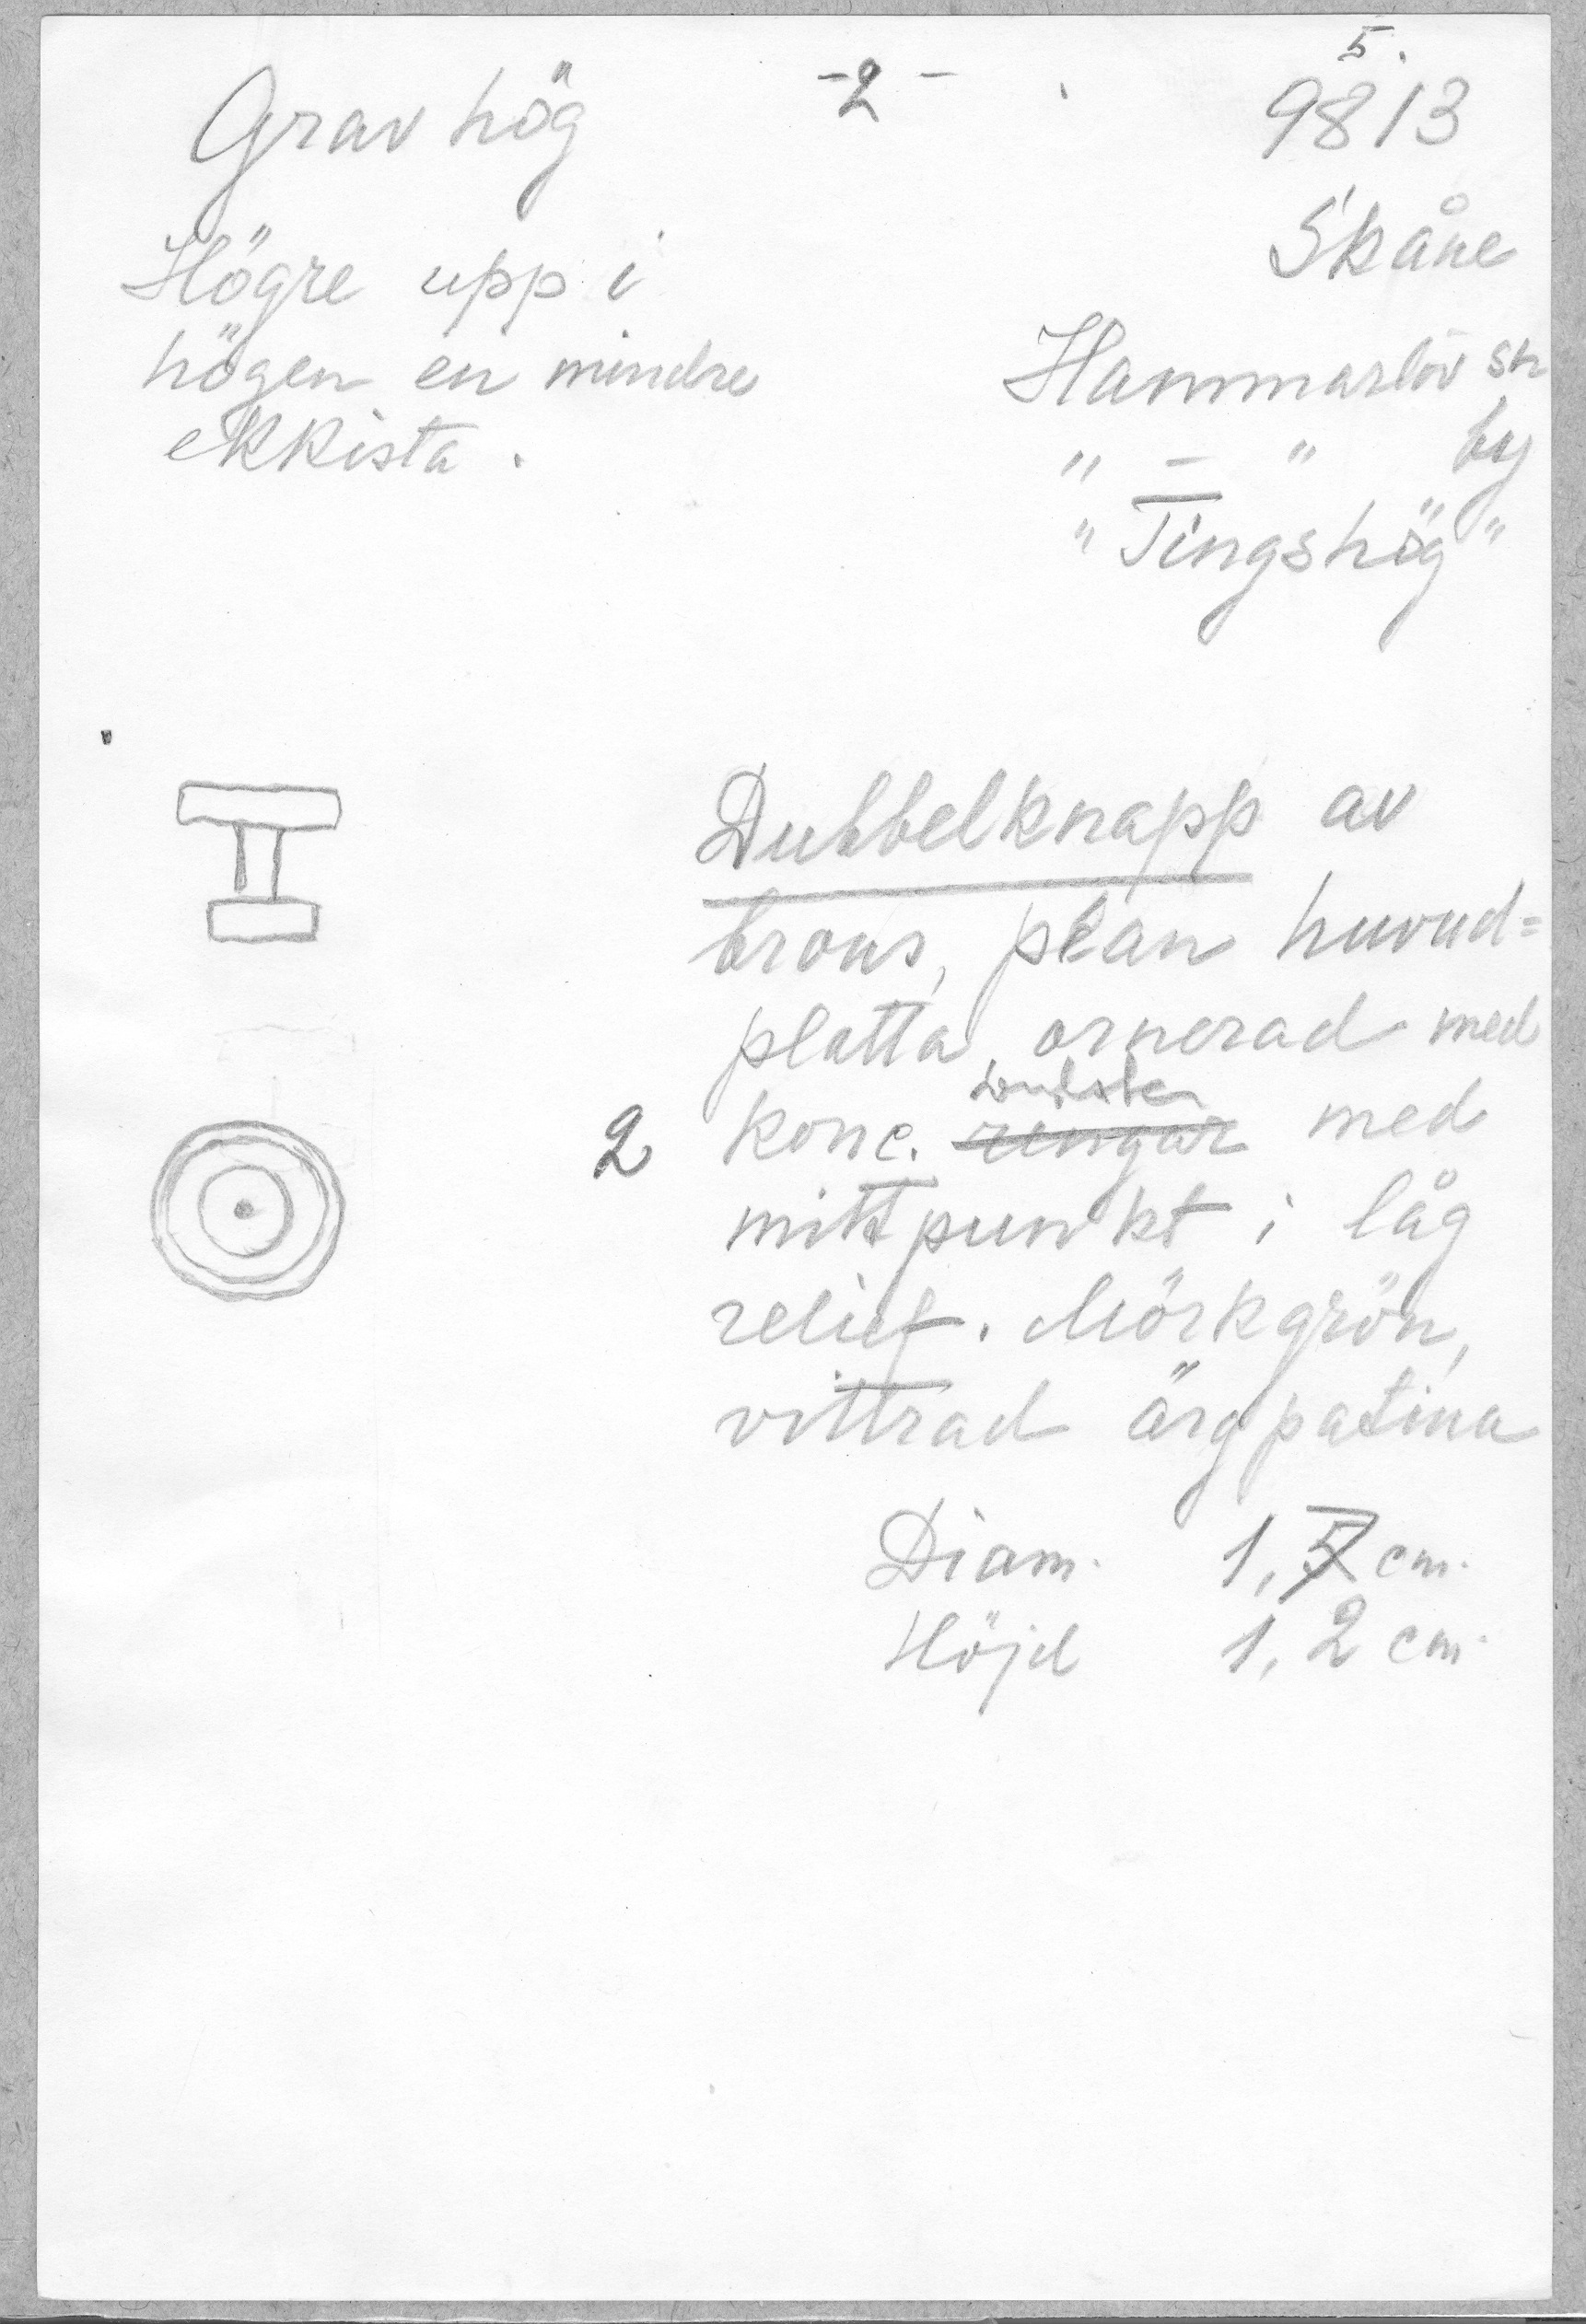 -2-
5.
Gravhög
9813
Skåne
Högre upp i
högen en mindre
ekkista.
Hammarlöv sn
" - " by
"Tingshög"
Dubbelknapp av
brons, plan huvud=
platta, ornerad med
2 konc. ringar med
mittpunkt i låg
relief. Mörkgrön,
vittrad ärgpatina
Diam. 1, cm.
Höjd 1,2 cm.